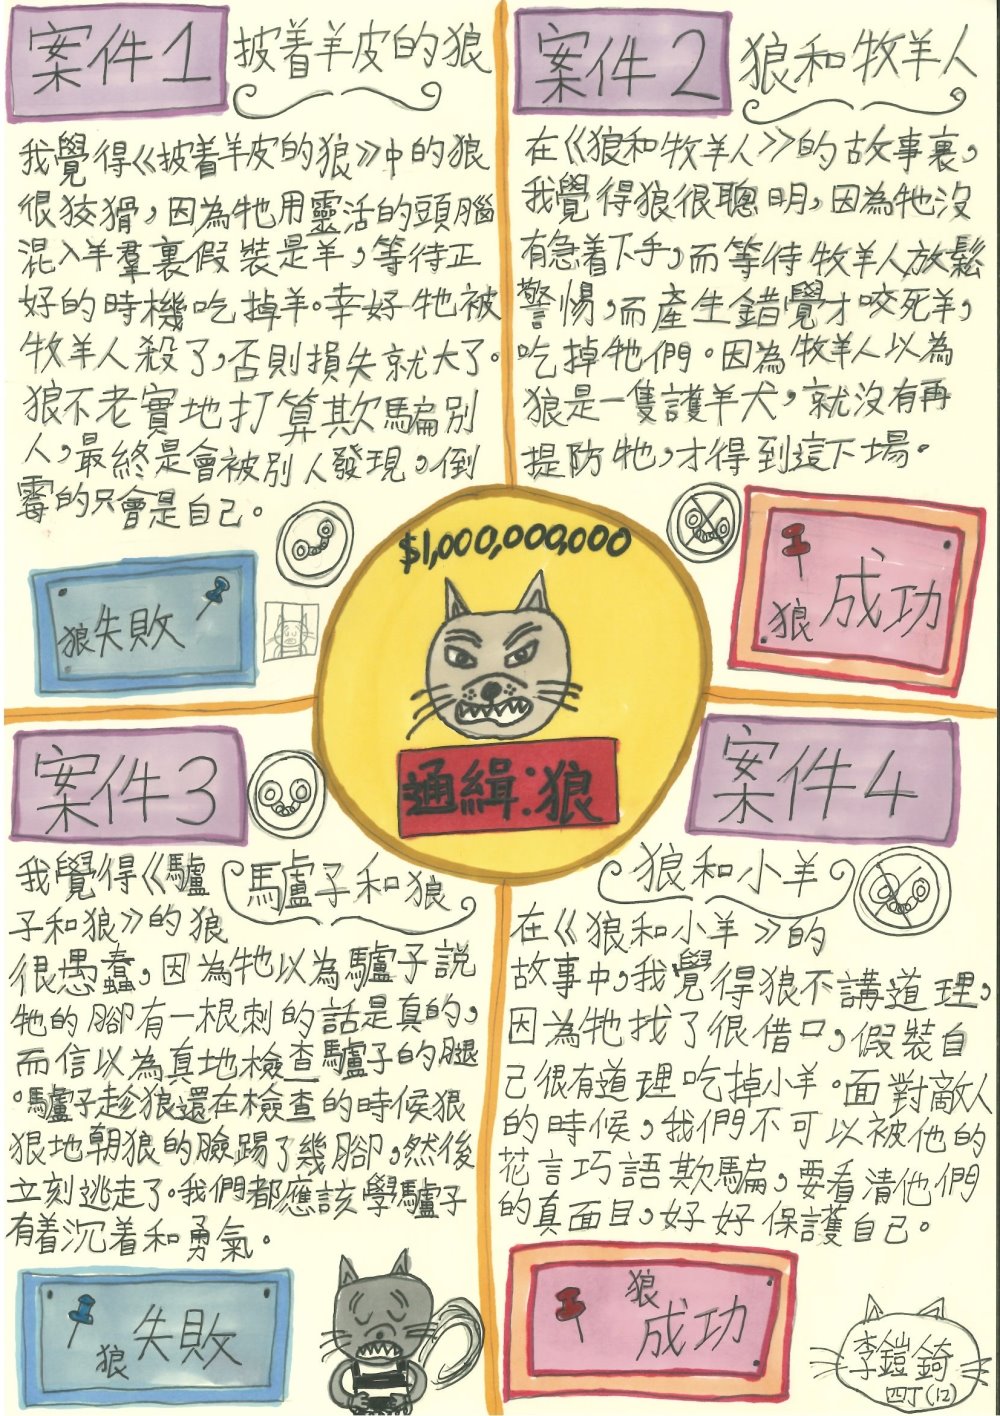 案件1
披着羊皮的狼
我覺得《披着羊皮的狼》中的狼
很狡猾，因為牠用靈活的頭腦
混入羊羣裏假裝是羊，等待正
好的時機吃掉羊。幸好牠被
牧羊人殺了，否則損失就大了。
狼不老實地打算欺騙別
人，最終是會被別人發現，倒
霉的只會是自己。
狼失敗
案件2
狼和牧羊人
在《狼和牧羊人》的故事裏，
我覺得狼很聰明，因為牠沒
有急着下手，而等待牧羊人放鬆
警惕，而產生錯覺才咬死羊，
吃掉牠們。因為牧羊人以為
狼是一隻護羊犬，就沒有再
提防牠，才得到這下場。
狼成功
$1,000,000,000
通緝：狼
案件3
驢子和狼
我覺得《驢
子和狼》的狼
很愚蠢，因為牠以為驢子說
牠的腳有一根刺的話是真的，
而信以為真地檢查驢子的腿
。驢子趁狼還在檢查的時候狠
狠地朝狼的臉踢了幾腳，然後
立刻逃走了。我們都應該學驢子
有着沉着和勇氣。
狼失敗
案件4
狼和小羊
在《狼和小羊》的
故事中，我覺得狼不講道理，
因為牠找了很借口，假裝自
己很有道理吃掉小羊。面對敵人
的時候，我們不可以被他的
花言巧語欺騙，要看清他們
的真面目，好好保護自己。
狼
成功
李鎧錡
四丁(12)